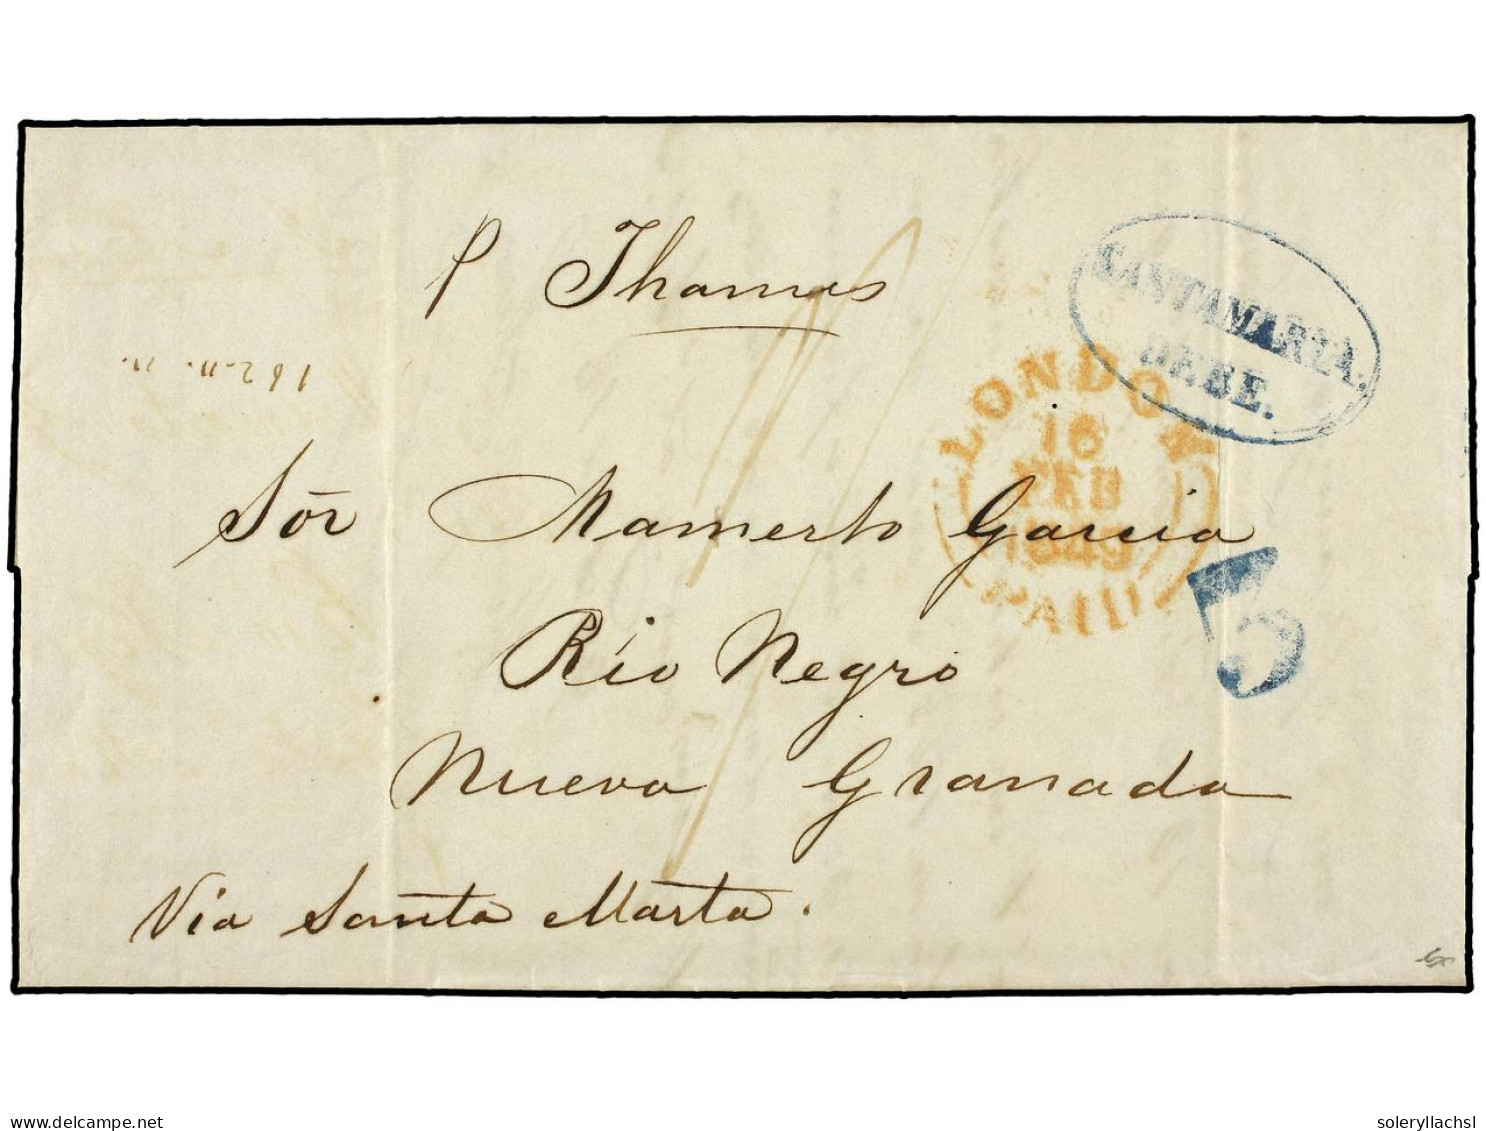 p Thames
SANTAMARTA.
DEBE.
LONDON
16
FEB
1849
PAID
Sōr Mamerto Garcia
5
Rio Negro
Nueva Granada
Via Santa Marta.
delcampe.net
soleryllachsl